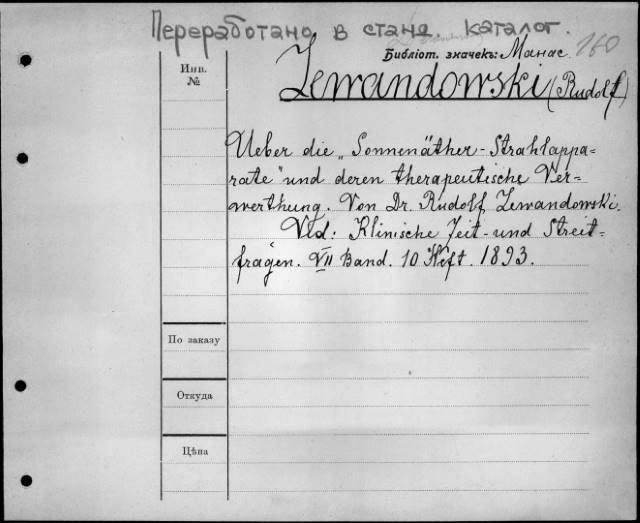 Переработано в станд. каталог.
Библіот. значекъ: Манас 160
Инв. №
Lewandowski (Rudolf)
Ueber die „Sonnenäther-Strahlappa=
rate" und deren therapeutische Ver=
werthung. Von Dr. Rudolf Lewandowski.
Vid: Klinische Zeit- und Streit=
fragen. VII Band. 10 Heft. 1893.
По заказу
Откуда
Цѣна